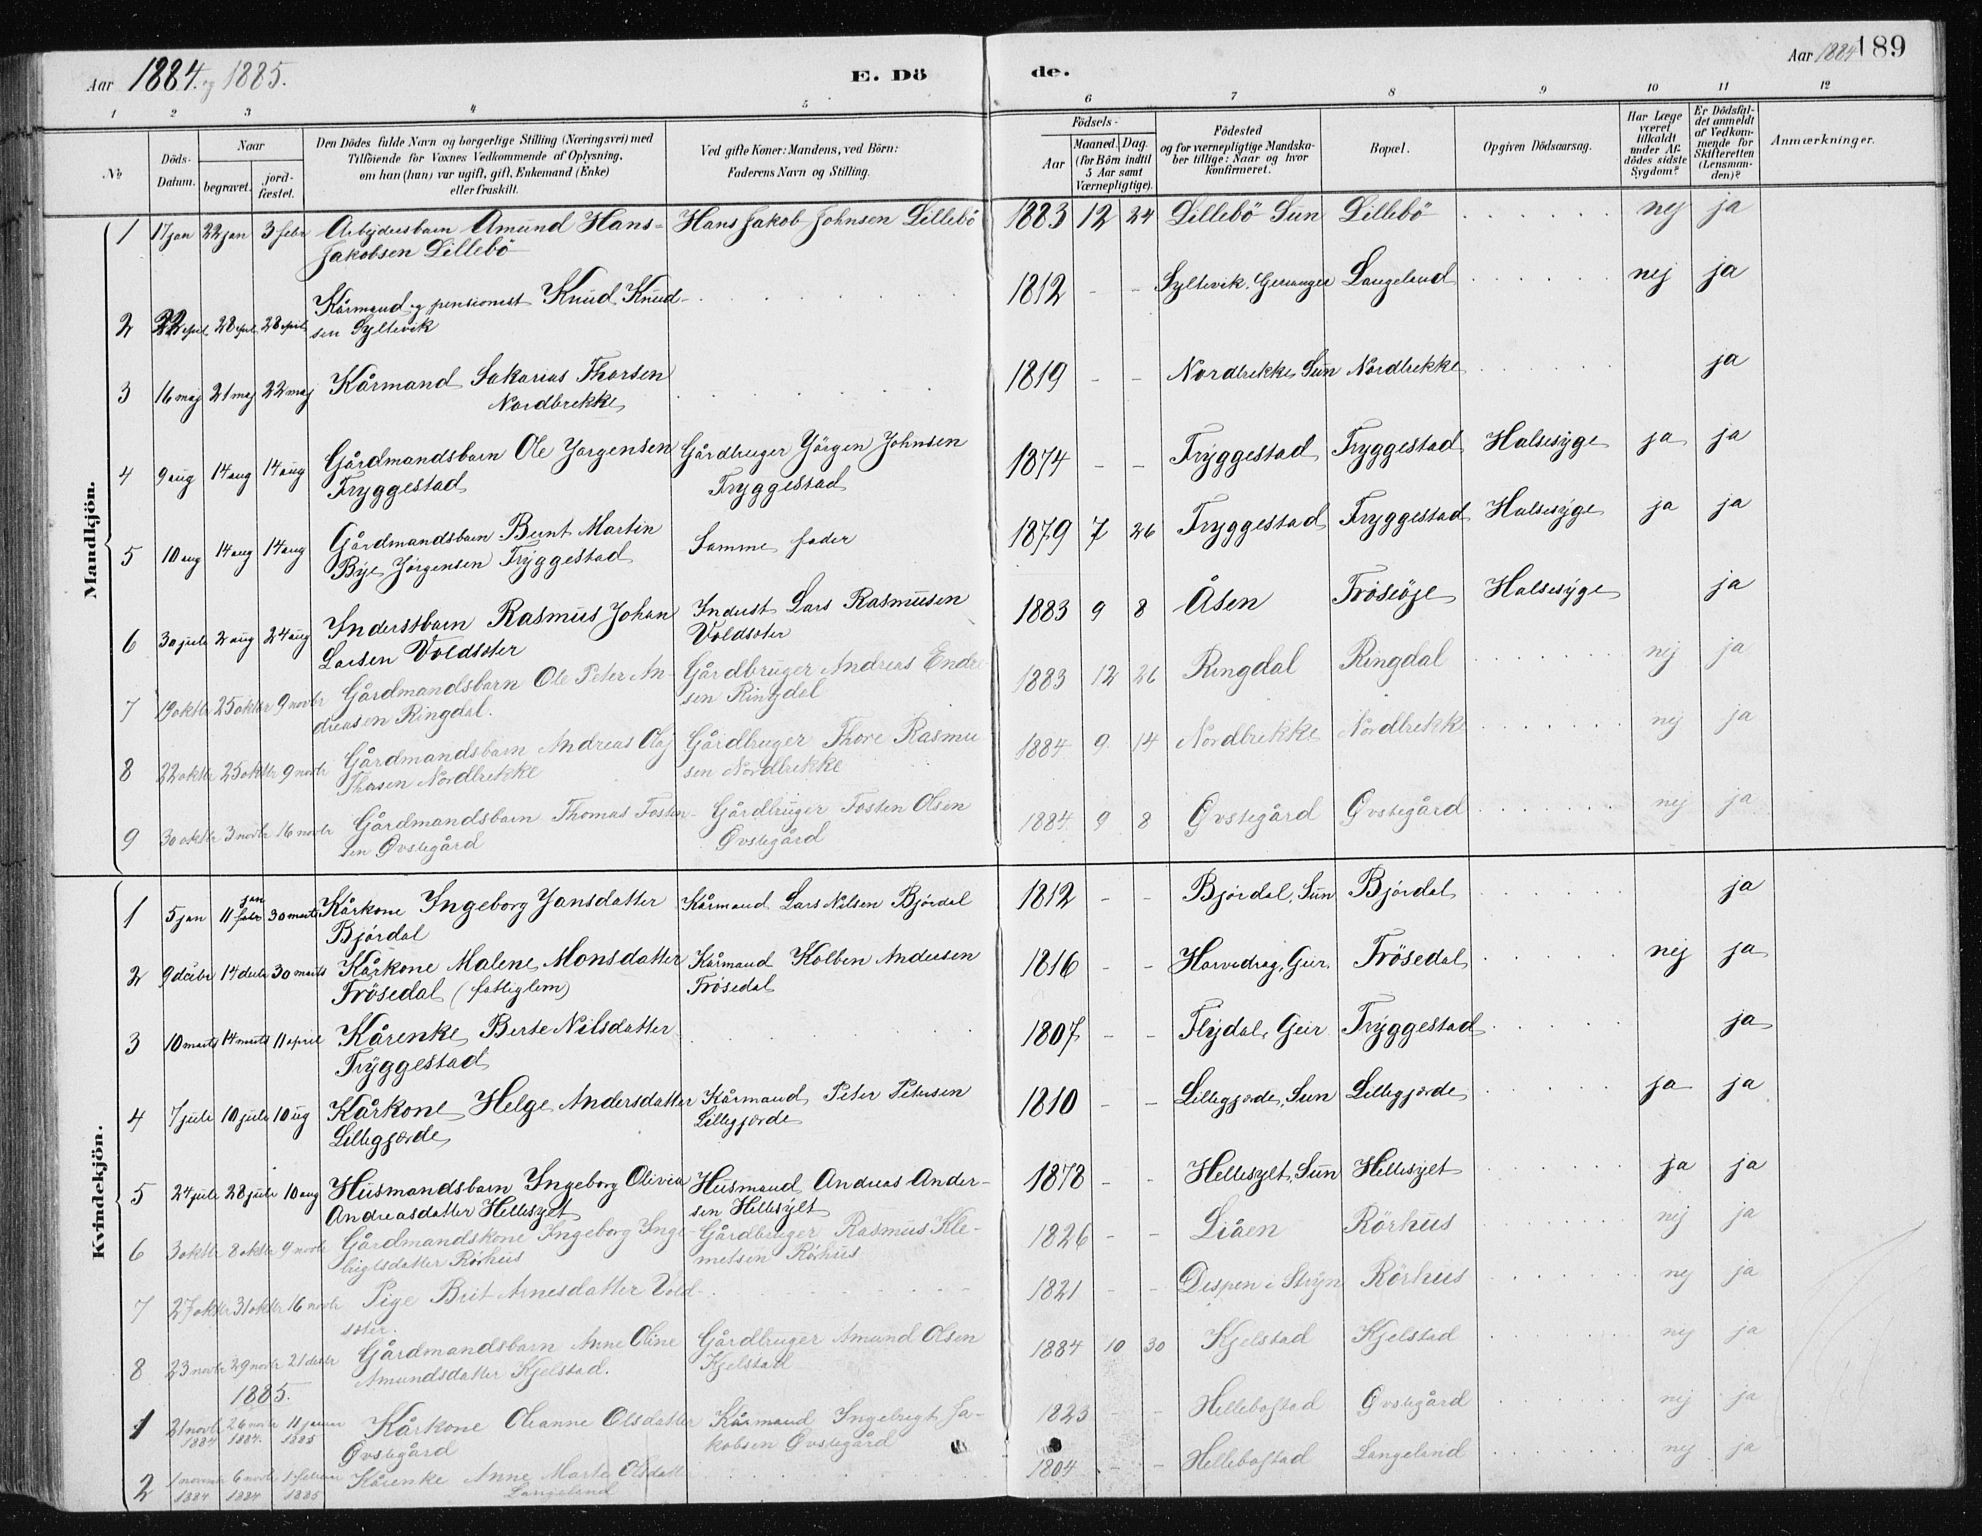 Aar 1884 og 1885. E. Dö de. Aar 1884 189
1 2 3 4 5 6 7 8 9 10 11 12
№
Döds-Datum.
Naar
begravet.
jord-fæstet.
Den Dödes fulde Navn og borgerlige Stilling (Næringsvei) med
Tilföiende for Voxnes Vedkommende af Oplysning,
om han (hun) var ugift, gift, Enkemand (Enke)
eller fraskilt.
Ved gifte Koner: Mandens, ved Börn:
Faderens Navn og Stilling.
Födsels-
Aar
Maaned. Dag.
(for Börn indtil
5 Aar samt
Værnepligtige).
Födested
og for værnepligtige Mandska-
ber tillige: Naar og hvor
konfirmeret.
Bopæl.
Opgiven Dödsaarsag.
Har Læge
været
tilkaldt
under Af-
dödes sidste
Sygdom?
Er Dödsfal-
det anmeldt
af Vedkom-
mende for
Skifteretten
(Lensman-
den)?
Anmærkninger.
Mandkjön.
1 17 jan 22 jan 3 febr Arbejdersbarn Amund Hans- Hans Jakob Johnsen Lillebö 1883 12 24 Lillebö Sun Lillebö nej ja
Jakobsen Lillebö
2 22 april 28 april 28 april Kårmand og pensionist Knud Knud- 1812 - - Syltevik, Geiranger Langeland nej ja
sen Syltevik
3 16 maj 21 maj 22 maj Kårmand Sakarias Thorsen 1819 - - Nordbrekke Sun Nordbrekke ja
Nordbrekke
4 9 aug 14 aug 14 aug Gårdmandsbarn Ole Jorgensen Gårdbruger Jörgen Johnsen 1874 - - Tryggestad Tryggestad Halsesyge ja ja
Tryggestad Tryggestad
5 10 aug 14 aug 14 aug Gårdmandsbarn Bernt Martin Samme fader 1879 7 26 Tryggestad Tryggestad Halsesyge ja ja
Bye Jörgensen Tryggestad
6 30 juli 2 aug 24 aug Inderstbarn Rasmus Johan Inderst Lars Rasmusen 1883 9 8 Åsen Frösöje Halsesyge ja
Larsen Voldseter Voldseter
7 19 oktbr 25 oktbr 9 novbr Gårdmandsbarn Ole Peter An- Gårdbruger Andreas Endre- 1883 12 26 Ringdal Ringdal nej ja
dreasen Ringdal. sen Ringdal
8 22 oktbr 25 oktbr 9 novbr Gårdmandsbarn Andreas Olaj Gårdbruger Thore Rasmu- 1884 9 14 Nordbrekke Nordbrekk nej ja
Thorsen Nordbrekke sen Nordbrekke
9 30 oktbr 3 novbr 16 novbr Gårdmandsbarn Thomas Tosten- Gårdbruger Tosten Olsen 1884 9 8 Øvstegård Øvstegård nej ja
sen Øvstegård Øvstegård
Kvindekjön.
1 5 jan 11 febr jan 30 marts Kårkone Ingeborg Jonsdatter Kårmand Lars Nilsen Björdal 1812 - - Bjórdal, Sun Bjórdal ja
Bjórdal
2 9 decbr 14 decbr 30 marts Kårkone Malene Monsdatter Kårmand Kolben Andersen 1816 - - Horvedrag, Geir. Frösedal nej ja
Frösedal (fattiglem) Frösedal
3 10 marts 14 marts 11 april Kårenke Berte Nilsdatter 1807 - - Flydal, Geir Tryggestad ja
Tryggestad
4 7 juli 10 juli 10 aug Kårkone Helge Andersdatter Kårmand Peter Petersen 1810 - - Lillegjerde, Sun Lillegjerde ja ja
Lillegjerde Lillegjerde
5 24 juli 28 juli 10 aug Husmandsbarn Ingeborg Olivia Husmand Andreas Ander- 1878 - - Hellesylt, Sun Hellesylt ja ja
Andreasdatter Hellesylt sen Hellesylt
6 3 oktbr 8 oktbr 9 novbr Gårdmandskone Ingeborg Inge- Gårdbruger Rasmus Kle- 1826 - - Liåen Rörhus nej ja
brigtsdatter Rörhus metsen Rörhus
7 27 oktbr 31 oktbr 16 novbr Pige Brit Arnesdatter Vold- 1821 - - Despen i Stryn Rörhus nej ja
seter.
8 23 novbr 29 novbr 21 decbr Gårdmandsbarn Anne Oline Gårdbruger Amund Olsen 1884 10 30 Kjelstad Kjelstad nej ja
Amundsdatter Kjelstad. Kjelstad
1885.
1 21 novbr 26 novbr 11 januar Kårkone Oleanne Olsdatter Kårmand Ingebregt Ja- 1823 - - Hellebostad Øvstegård nej ja
1884 1884. 1885 Øvstegård kobsen Øvstegård
2 1 novembr 6 novbr 1 februar Kårenke Anne Marte Olsdatter 1804 - - Hellebostad Langeland nej ja
1884 1884 1885 Langeland